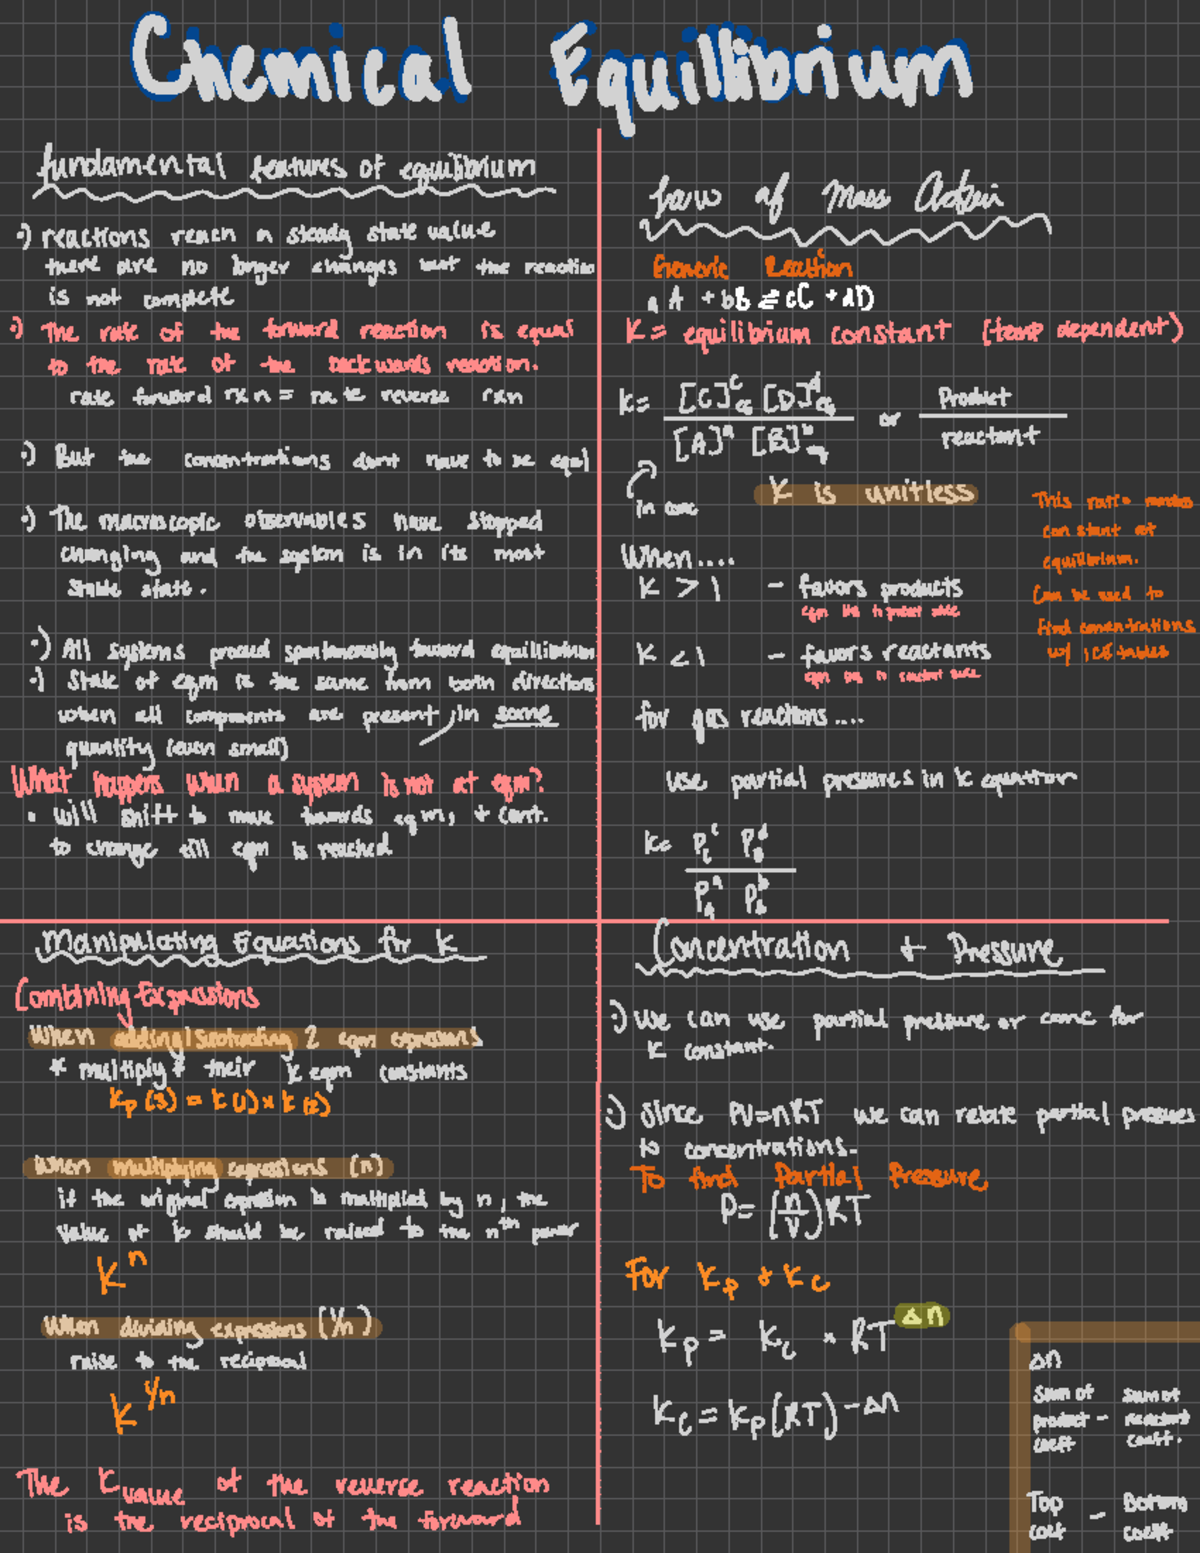 Chemical Equillibrium
fundamental features of equilibrium
•) reactions reach a steady state value
there are no longer changes but the reaction
is not complete
•) The rate of the forward reaction is equal
to the rate of the backwards reaction.
rate forward rxn = rate reverse rxn
•) But the concentrations dont have to be equal
•) The macroscopic observables have stopped
changing and the system is in its most
stable state.
•) All systems proceed spontaneously toward equilibrium
•) State of eqm is the same from both directions
when all components are present, in some
quantity (even small)
What happens when a system is not at eqm?
• will shift to move towards eqm, + cont.
to change till eqm is reached
Law of Mass Action
Generic Reaction
aA + bB ⇌ cC + dD
K = equilibrium constant (temp dependent)
K = [C]^c eq [D]^d eq / [A]^a [B]^b eq or Product / reactant
in conc
K is unitless
This ratio
constant at
equilibrium.
Can be used to
find concentrations
w/ ICE tables
When....
K > 1 - favors products
eqm lies to product side
K < 1 - favors reactants
eqm lies to reactant side
for gas reactions....
use partial pressures in K equation
K = P_C^c P_D^d / P_A^a P_B^b
Manipulating Equations for K
Combining Expressions
When adding/subtracting 2 eqm expressions
* multiply * their K eqm constants
Kp(3) = K(1) × K(2)
When multiplying expressions (n)
if the original expression is multiplied by n, the
value of K should be raised to the n^th power
K^n
When dividing expressions (1/n)
raise to the reciprocal
K^1/n
The K value of the reverse reaction
is the reciprocal of the forward
Concentration + Pressure
•) We can use partial pressure or conc for
K constant.
•) Since PV=nRT we can relate partial pressures
to concentrations.
To find Partial Pressure
P = (n/V)RT
For Kp + Kc
Kp = Kc × RT^Δn
Kc = Kp(RT)^-Δn
Δn
Sum of product coeff - sum of reactant coeff.
Top coef - Bottom coeff